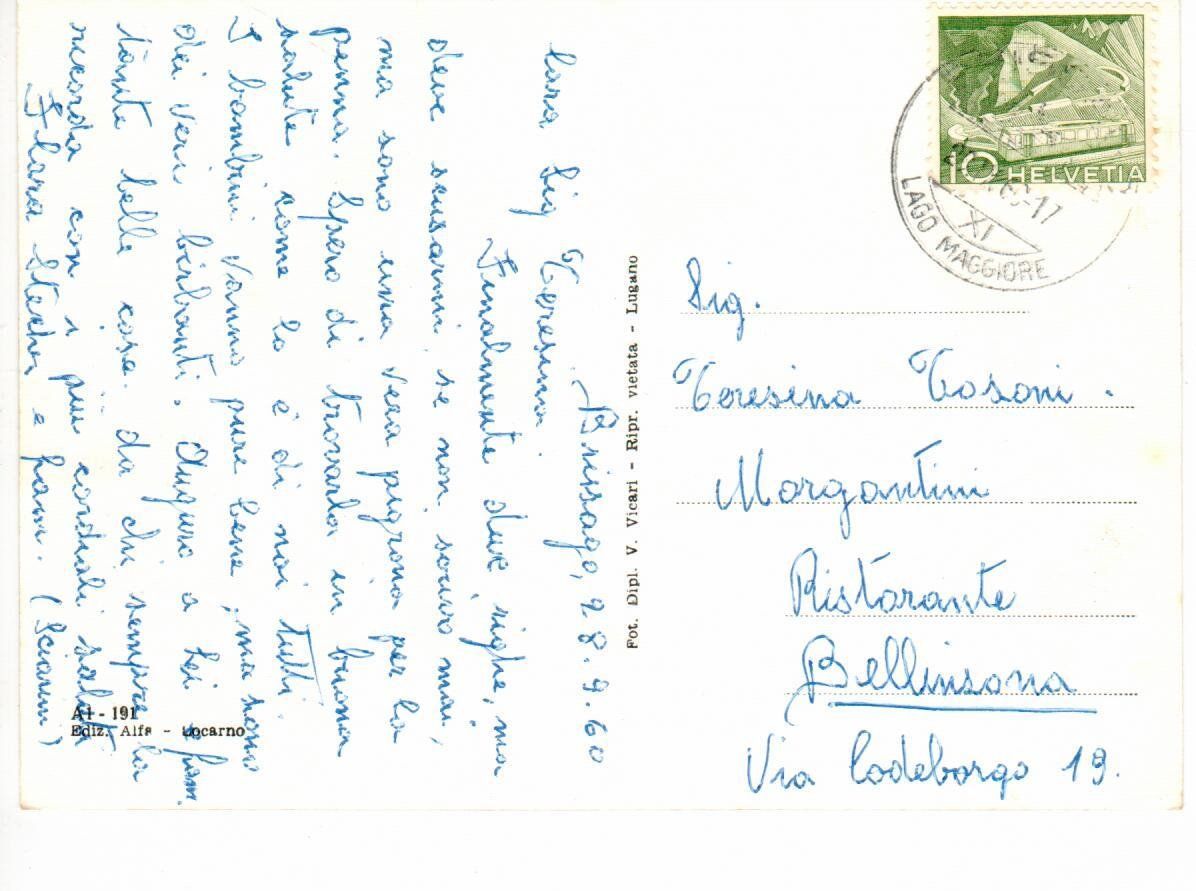 Brissago, 28.9.60
Cara Sig Teresina.
Finalmente due righe, ma
deve scusarmi se non scrivo mai,
ma sono una vera pigrona per la
penna. Spero di trovarla in buona
salute come lo è di noi tutti.
I bambini vanno pure bene, ma sono
dei veri birbanti. Auguro a Lei e fam.
tante belle cose.. da chi sempre la
ricorda con i più cordiali saluti
e fam. (Scianm)
Fot. Dipl. V. Vicari - Ripr. vietata - Lugano
A1 - 191
Ediz. Alfa - Locarno
10 HELVETIA
XI
LAGO MAGGIORE
Sig.
Teresina Tosoni.
Morgantini
Ristorante
Bellinsona
Via Codeborgo 19.